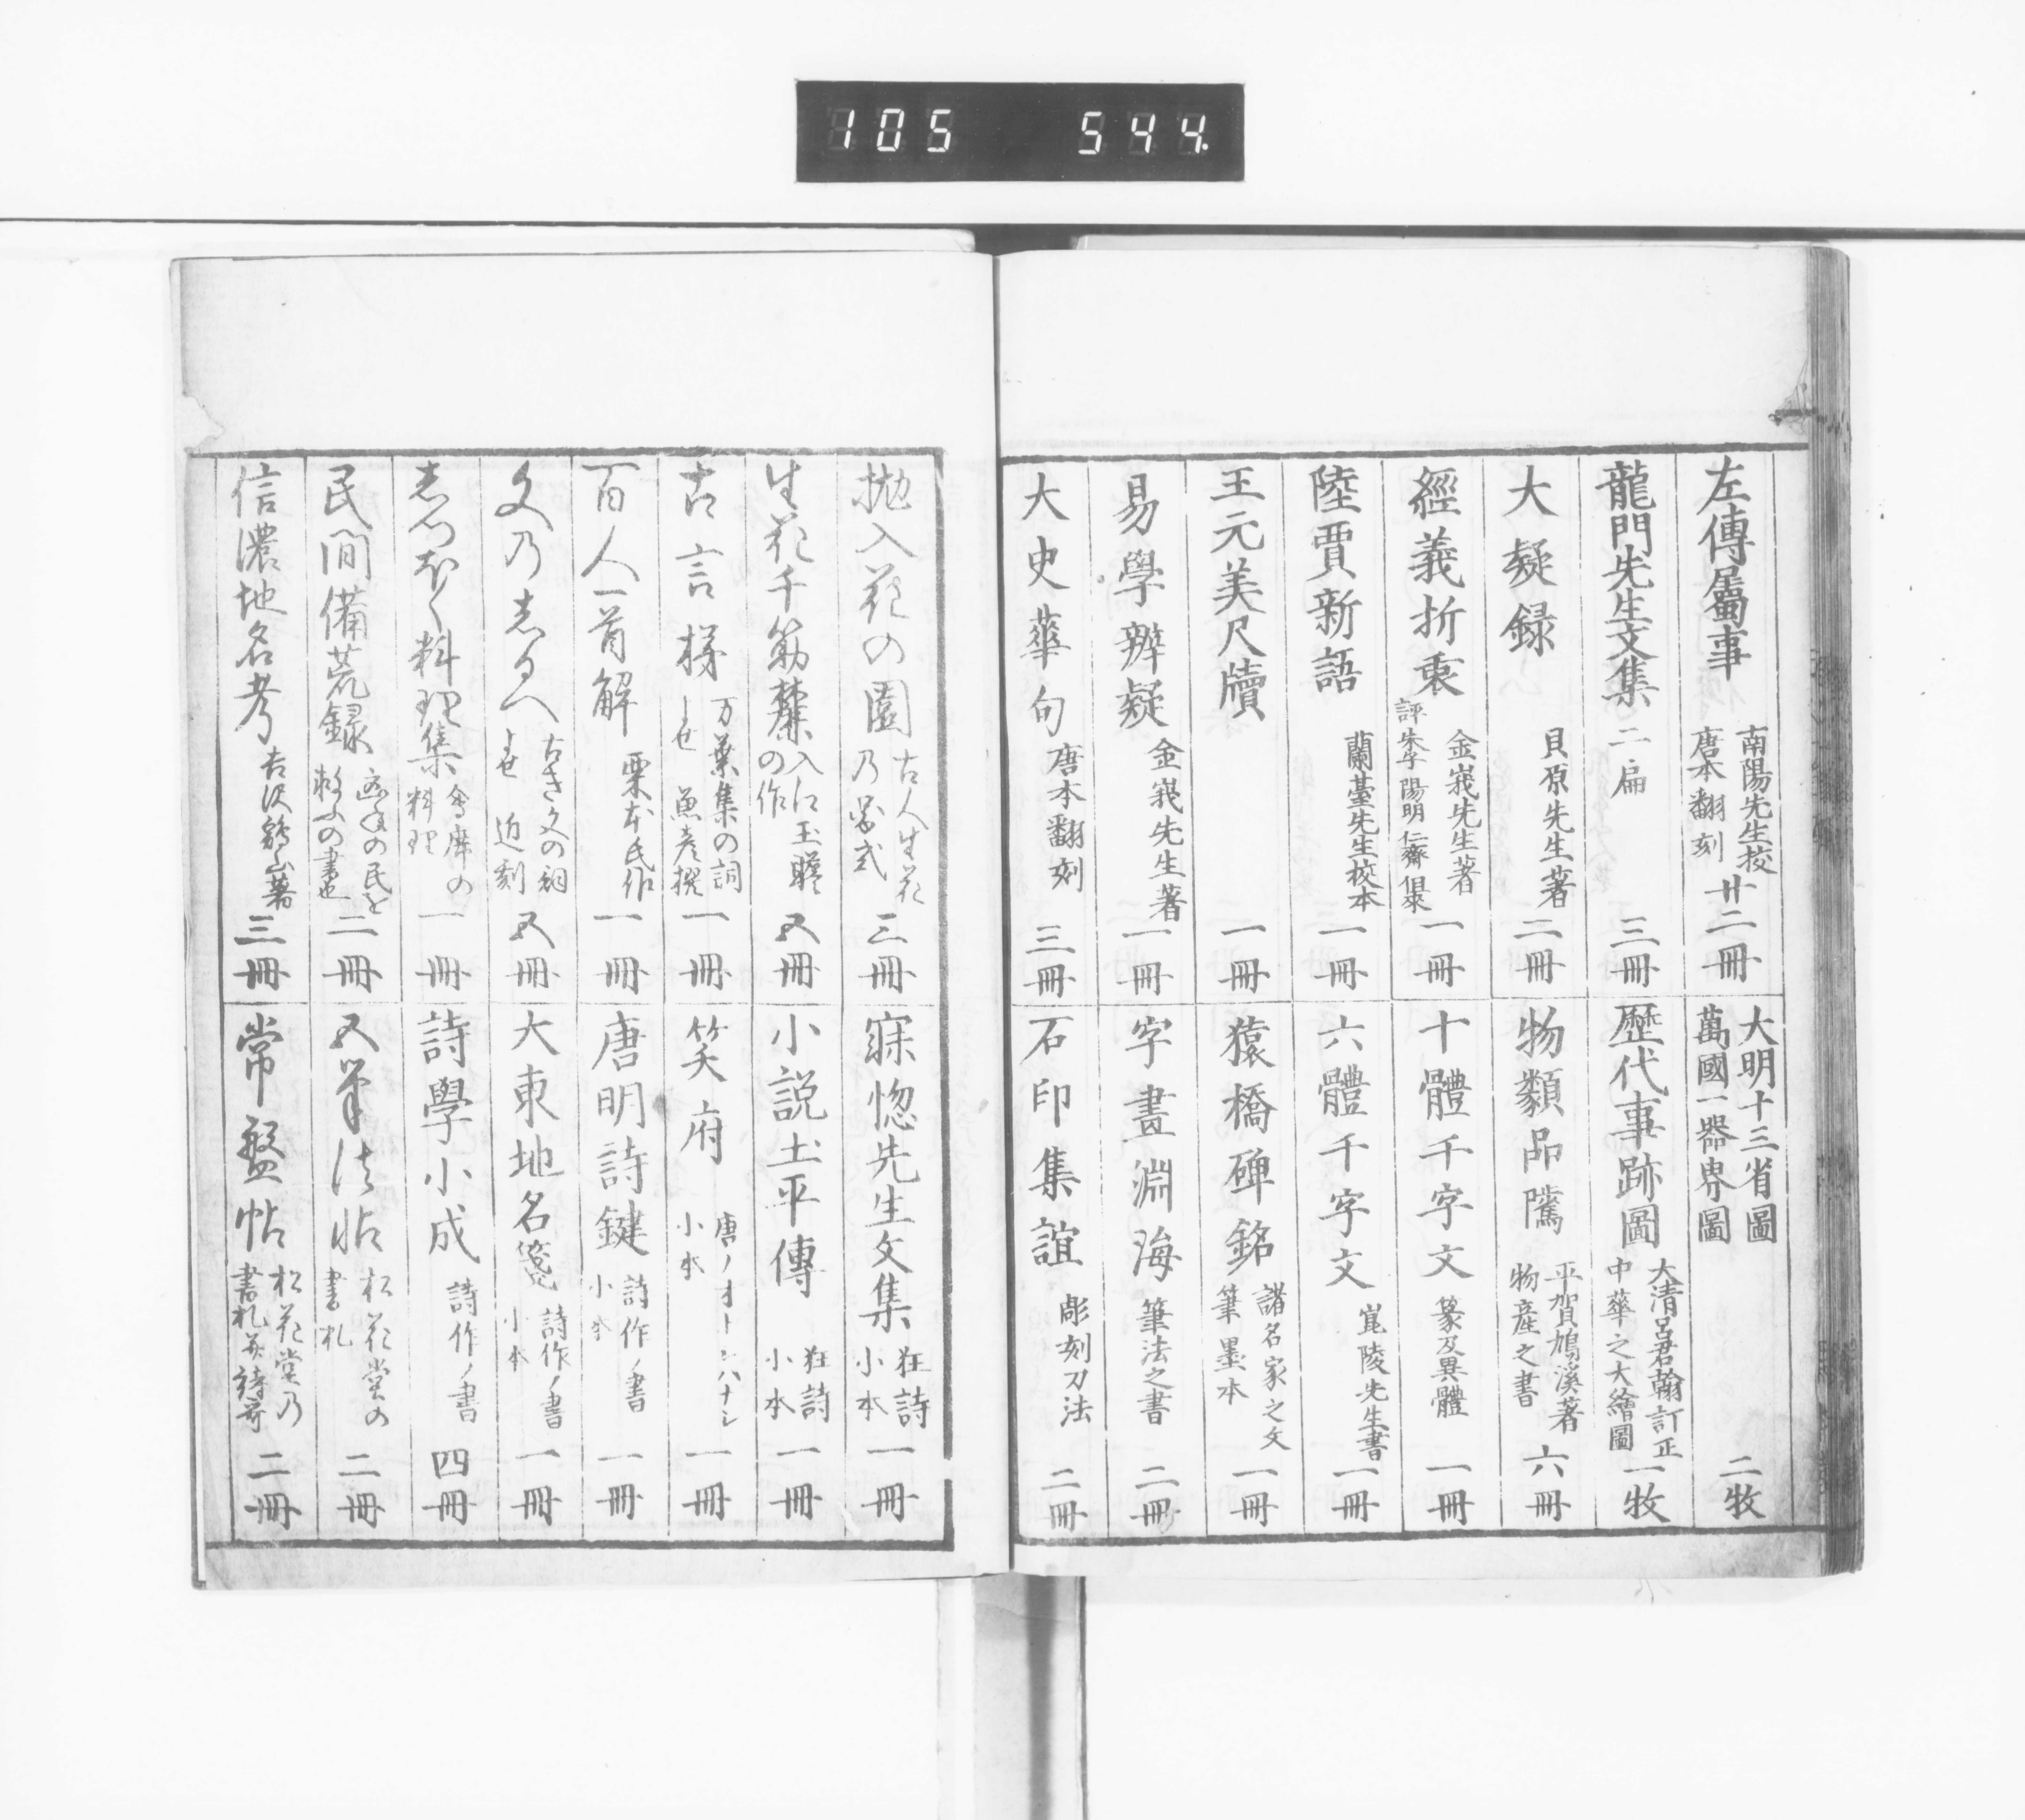 105 544.
左傳屬事 南陽先生挍 唐本翻刻 廿二冊
龍門先生文集 二扁 三冊
大疑録 貝原先生著 二冊
經義折衷 金峩先生著 評朱学陽明仁齋徂來 一冊
陸賈新語 蘭臺先生挍本 一冊
王元美尺牘 一冊
易學辨疑 金峩先生著 一冊
大史華句 唐本翻刻 三冊
大明十三省圖 萬國一器界圖 二枚
歴代事跡圖 大清呂君翰訂正 中華之大繪圖 一枚
物類品隲 平賀鳩溪著 物産之書 六冊
十體千字文 篆及異體 一冊
六體千字文 崑陵先生書 一冊
猿橋碑銘 諸名家之文 筆墨本 一冊
字畫淵海 筆法之書 二冊
石印集誼 彫刻刀法 二冊
抛入花の園 古人生花乃器式 三冊
生花千筋麓 入江玉蟾の作 五冊
古言梯 万葉集の詞 魚彦撰 一冊
百人一首解 栗本氏作 一冊
文乃志るへ 古き文の詞 近刻 五冊
志つほく料理集 會席の料理 一冊
民間備荒録 民を救ふの書也 二冊
信濃地名考 吉沢鶏山著 三冊
寐惚先生文集 狂詩 小本 一冊
小説土平傳 狂詩 小本 一冊
笑府 唐ノオトシハナシ 小本 一冊
唐明詩鍵 詩作ノ書 小本 一冊
大東地名箋 詩作ノ書 小本 一冊
詩學小成 詩作ノ書 四冊
五筆法帖 松花堂の書札 二冊
常盤帖 松花堂乃書札并詩哥 二冊